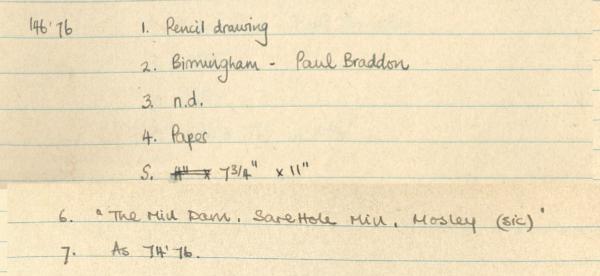 '46'76 1. Pencil drawing
2. Birmingham - Paul Braddon
3. n.d.
4. Paper
5. 4" x 7 3/4" x 11"
6. "The Mill Dam, Sarehole Mill, Mosley (sic)"
7. As 74'76.